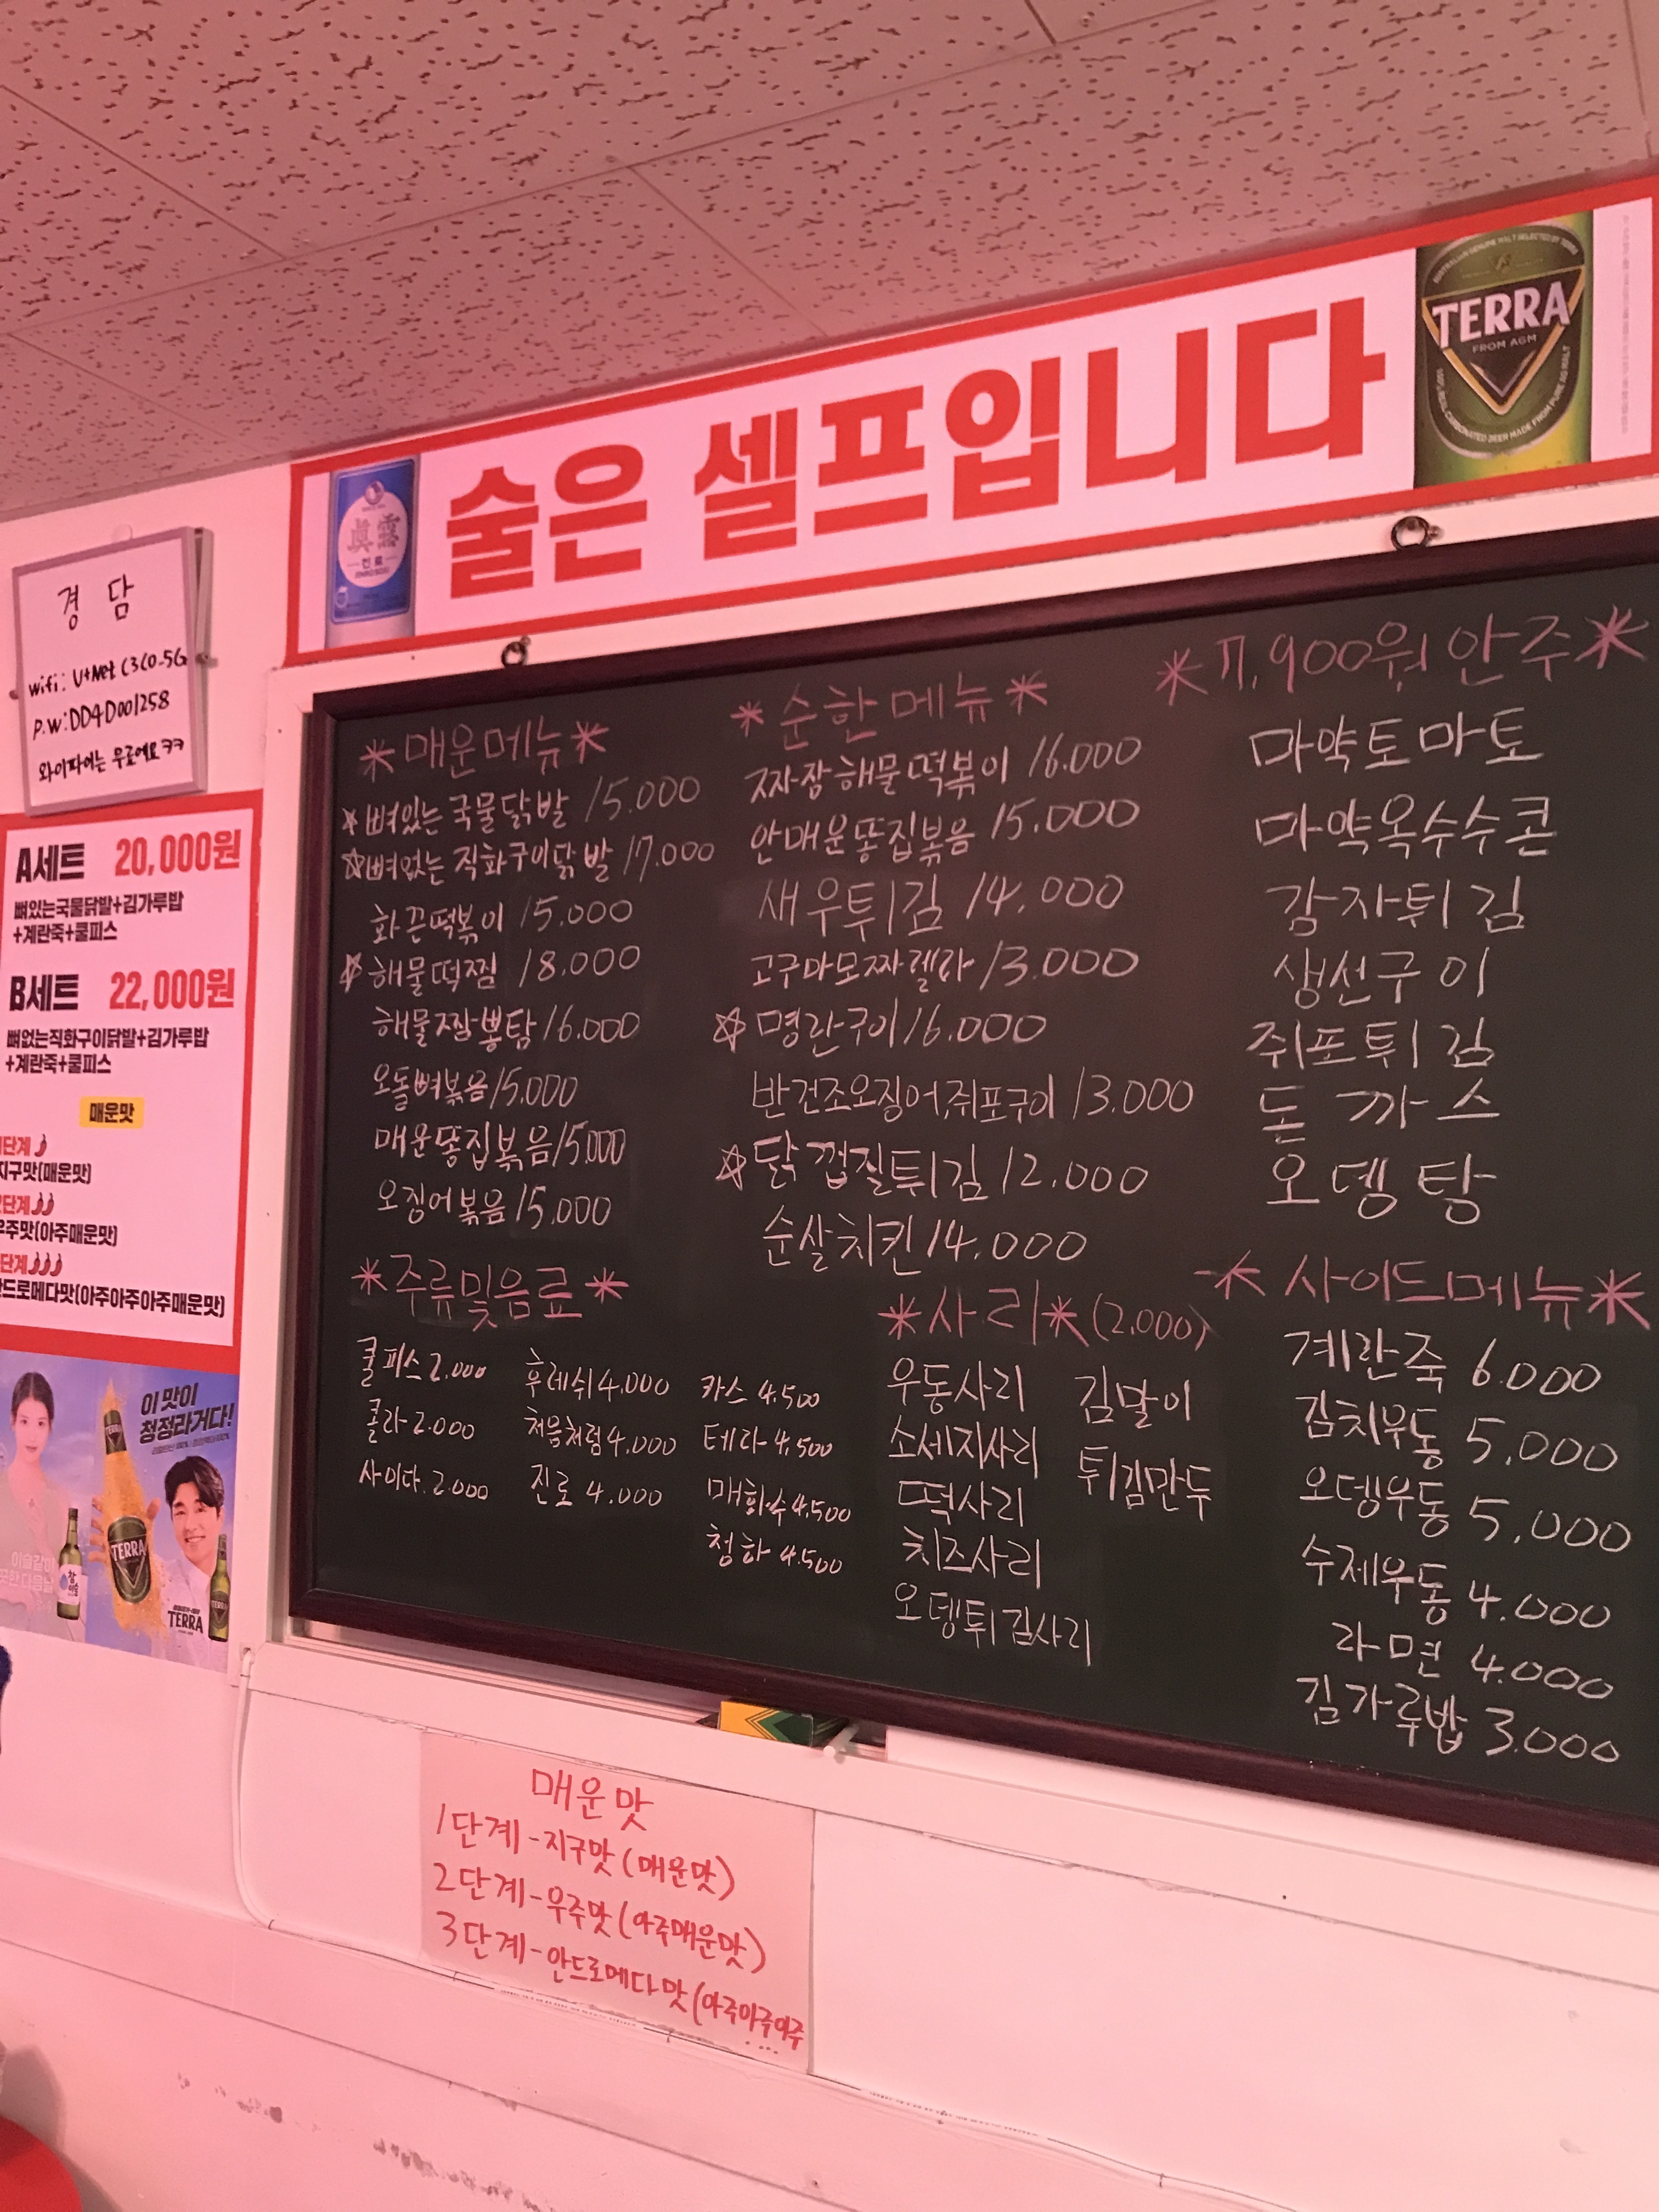 술은 셀프입니다
眞露
진로
TERRA
FROM AGM
경담
wifi: U+Net C3C0-5G
P.W: DD4D001258
와이파이는 무료에요 ㅋㅋ
A세트 20,000원
뼈있는국물닭발+김가루밥
+계란죽+쿨피스
B세트 22,000원
뼈없는직화구이닭발+김가루밥
+계란죽+쿨피스
매운맛
단계
지구맛(매운맛)
단계
우주맛(아주매운맛)
단계
안드로메다맛(아주아주아주매운맛)
이 맛이
청정라거다!
TERRA
참이슬
TERRA
*매운메뉴*
☆뼈있는 국물닭발 15.000
☆뼈없는 직화구이닭발 17.000
화끈떡볶이 15.000
☆해물떡찜 18.000
해물짬뽕탕 16.000
오돌뼈볶음 15.000
매운똥집볶음 15.000
오징어볶음 15.000
*순한메뉴*
짜장해물떡볶이 16.000
안매운똥집볶음 15.000
새우튀김 14.000
고구마모짜렐라 13.000
☆명란구이 16.000
반건조오징어,쥐포구이 13.000
☆닭껍질튀김 12.000
순살치킨 14.000
*7,900원 안주*
마약토마토
마약옥수수콘
감자튀김
생선구이
쥐포튀김
돈까스
오뎅탕
*주류및음료*
쿨피스 2.000
콜라 2.000
사이다. 2.000
후레쉬 4.000
처음처럼 4.000
진로 4.000
카스 4.500
테라 4.500
매화수 4.500
청하 4.500
*사리* (2.000)
우동사리
소세지사리
떡사리
치즈사리
오뎅튀김사리
김말이
튀김만두
*사이드메뉴*
계란죽 6.000
김치우동 5.000
오뎅우동 5.000
수제우동 4.000
라면 4.000
김가루밥 3.000
매운맛
1단계-지구맛(매운맛)
2단계-우주맛(아주매운맛)
3단계-안드로메다맛(아주아주아주
....